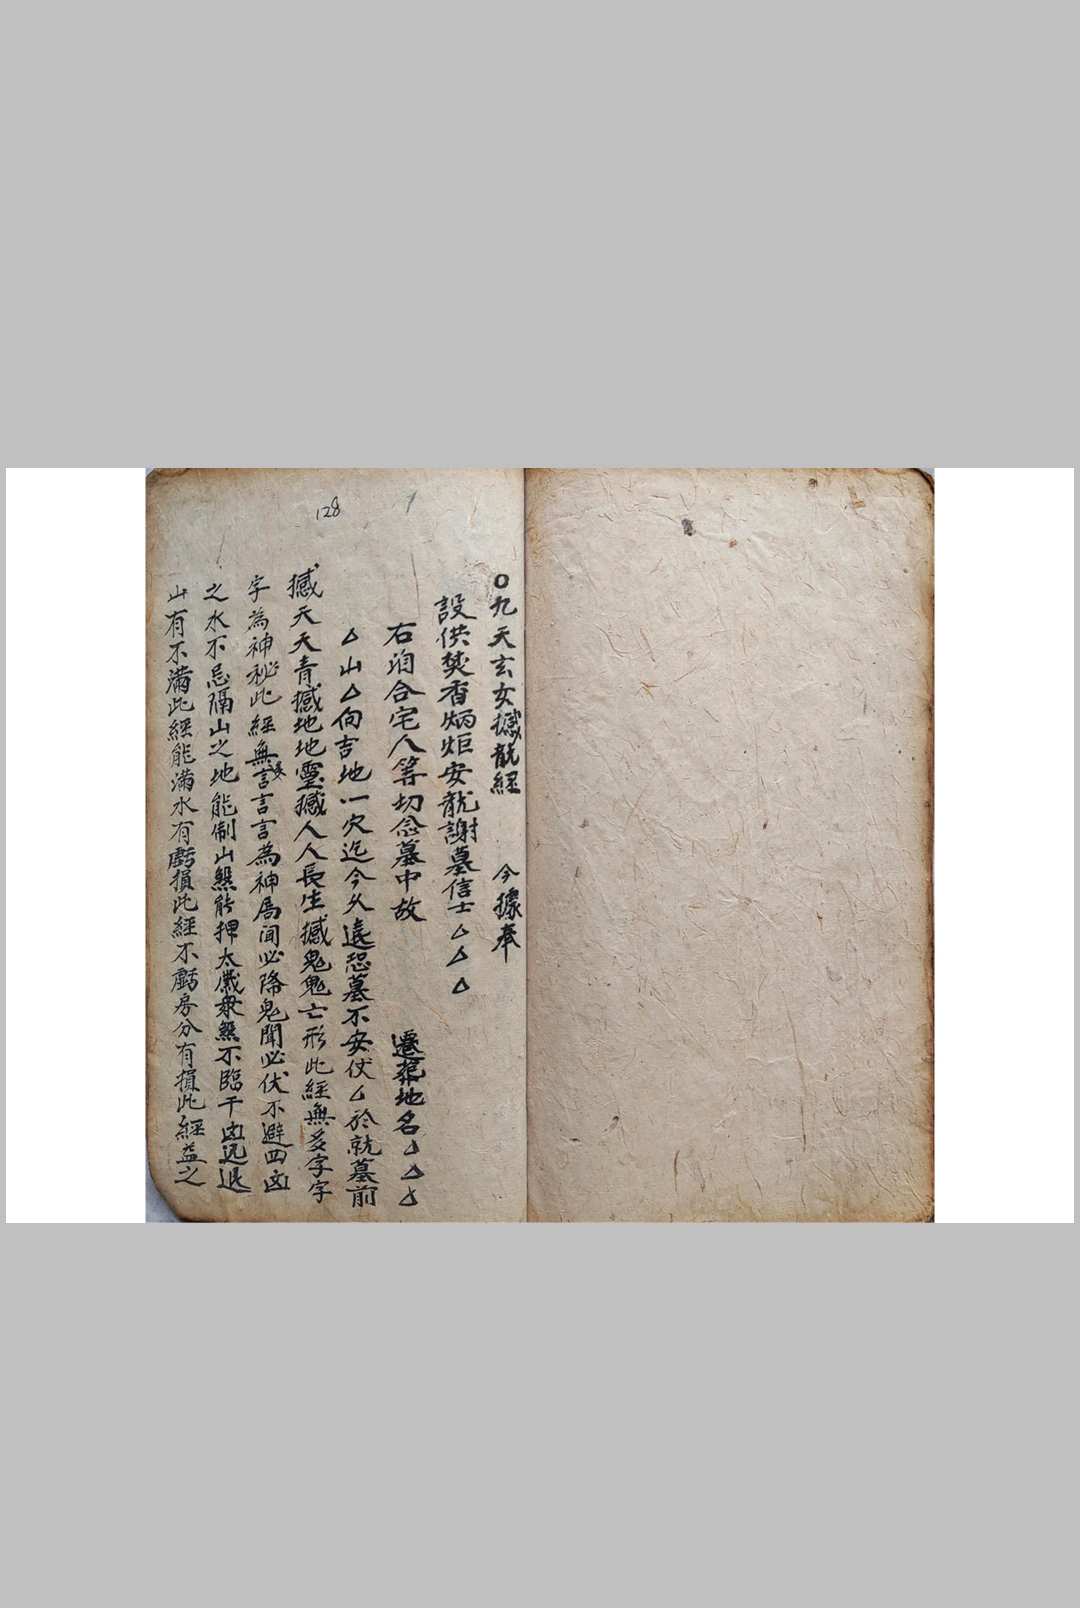 128
○九天玄女撼龍經 今據奉
設供焚香炳炬安龍謝墓信士△△△
右洎合宅人等切念墓中故 遷葬地名△△△
△山△向吉地一穴迄今久遠恐墓不安伏△於就墓前
撼天天青撼地地靈撼人人長生撼鬼鬼亡形此經無多字字
字為神秘此經無長言言言為神局聞必降鬼聞必伏不避四凶
之水不忌隔山之地能制山熊能押太歲衆煞不臨干凶迅退
山有不滿此經能滿水有虧損此經不虧房分有損此經益之